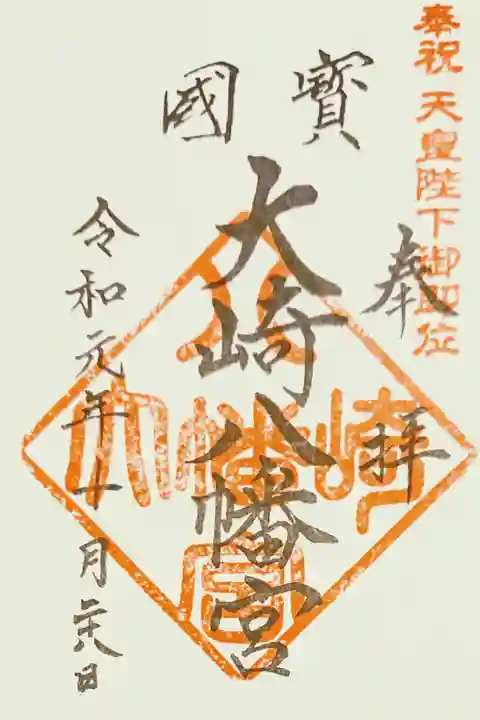 奉祝 天皇陛下御即位
奉拝
國寶
大崎八幡宮
大崎八幡宮
令和元年十月日